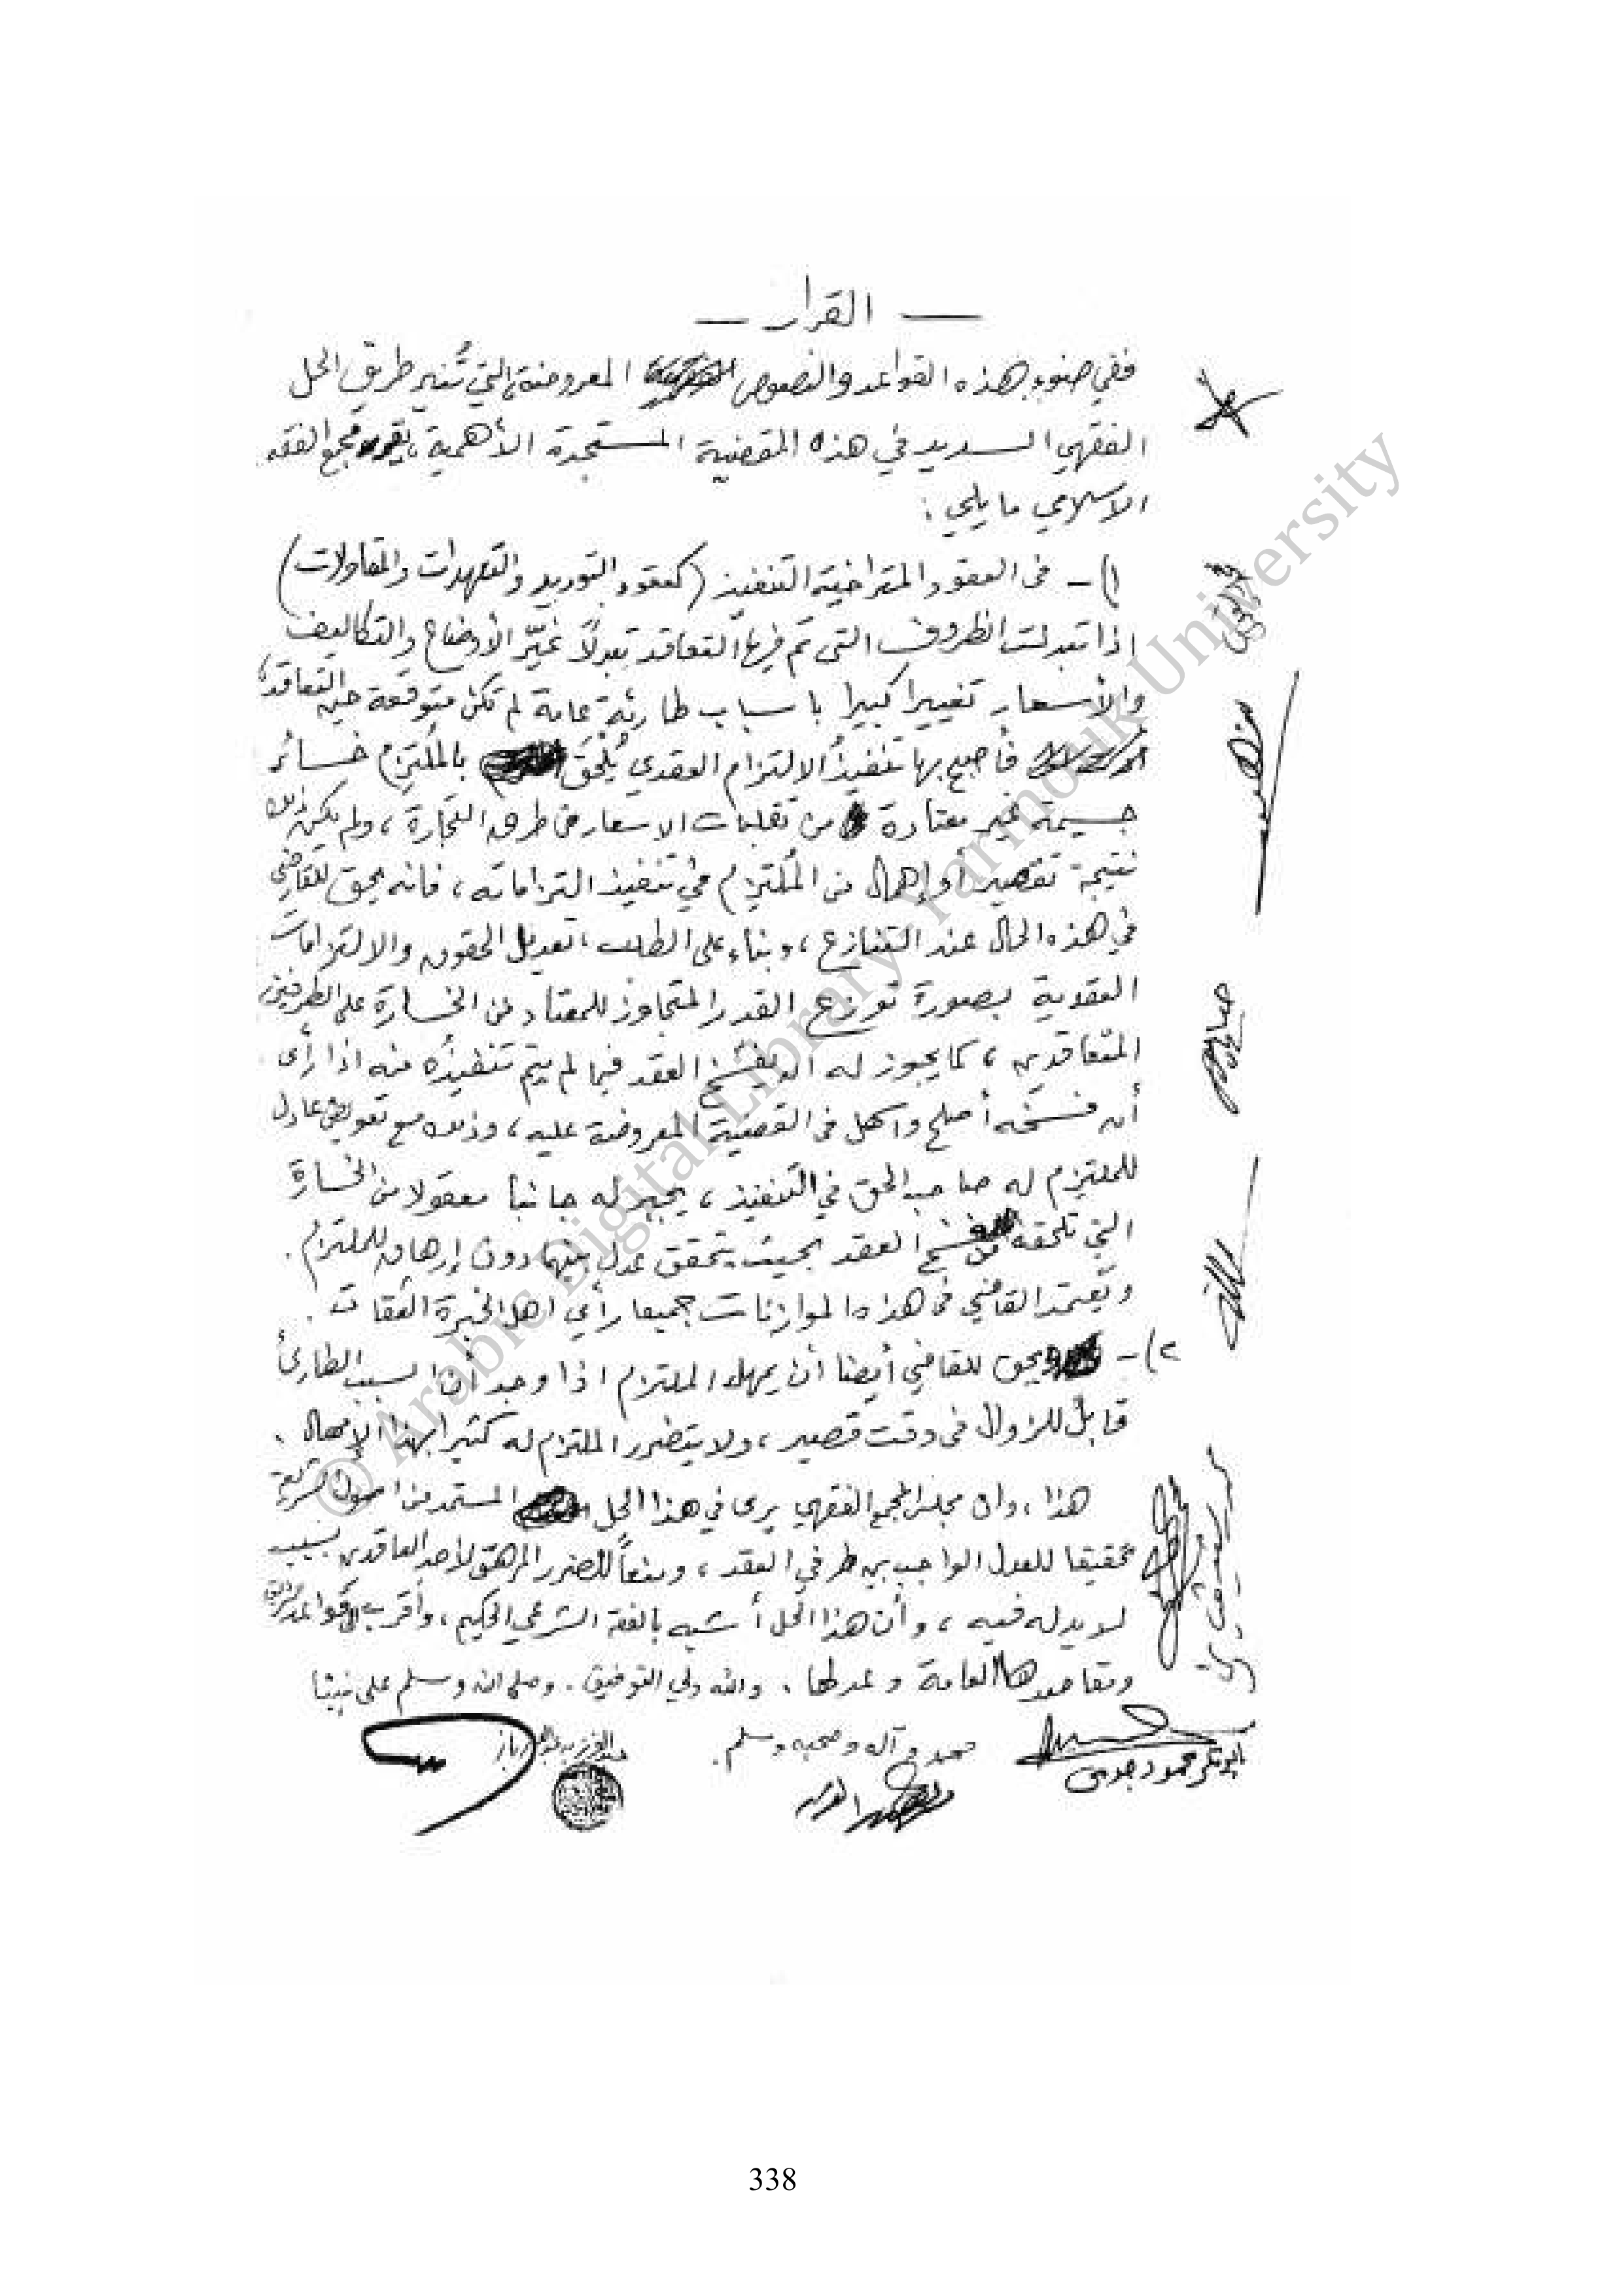 — القرار —
ففي ضوء هذه القواعد والنصوص المعروضة، التي تُنير طريق الحل
الفقهي السديد في هذه القضية المستجدة الأهمية، يقرر مجمع الفقه
الاسلامي ما يلي :
١) - في العقود المتراخية التنفيذ (كعقود التوريد والتعهدات والمقاولات)
اذا تبدلت الظروف التي تم فيها التعاقد تبدلاً غيّر الأوضاع والتكاليف
والأسعار تغييرا كبيرا بأسباب طارئة عامة لم تكن متوقعة حين التعاقد،
فأصبح بها تنفيذُ الالتزام العقدي يُلحق بالملتزم خسائر
جسيمة غير معتادة من تقلبات الاسعار في طرق التجارة، ولم يكن ذلك
نتيجة تقصير أو إهمال من المُلتزم في تنفيذ التزاماته، فانه يحق للقاضي
في هذه الحال عند التنازع، وبناء على الطلب، تعديل الحقوق والالتزامات
العقدية بصورة توزع القدر المتجاوز للمعتاد من الخسارة على الطرفين
المتعاقدين، كما يجوز له أن يفسخ العقد فيما لم يتم تنفيذُه منه اذا رأى
أن فسخه أصلح وأسهل في القضية المعروضة عليه، وذلك مع تعويض عادل
للملتزم له صاحب الحق في التنفيذ، يجبر له جانبا معقولا من الخسارة
التي تلحقه من فسخ العقد بحيث يتحقق عدل بينهما دون إرهاق للملتزم.
ويعتمد القاضي في هذه الموازنات جميعا رأي أهل الخبرة الثقات.
٢) - ويحق للقاضي أيضا أن يمهل الملتزم اذا وجد أن السبب الطارئ
قابل للزوال في وقت قصير، ولا يتضرر الملتزم له كثيرا بهذا الإمهال.
هذا، وان مجلس المجمع الفقهي يرى في هذا الحل المستمد من اصول الشريعة
تحقيقا للعدل الواجب بين طرفي العقد، ومنعاً للضرر المرهق لأحد العاقدين بسبب
لا يد له فيه، وأن هذا الحل أشبه بالفقه الشرعي الحكيم، وأقرب الى قواعد الشريعة
ومقاصدها العامة وعدلها. والله ولي التوفيق. وصلى الله وسلم على نبينا
محمد وآله وصحبه وسلم.
عبد العزيز بن عبد الله بن باز
أبو بكر محمود جومي
© Arabic Digital Library Yarmouk University
338